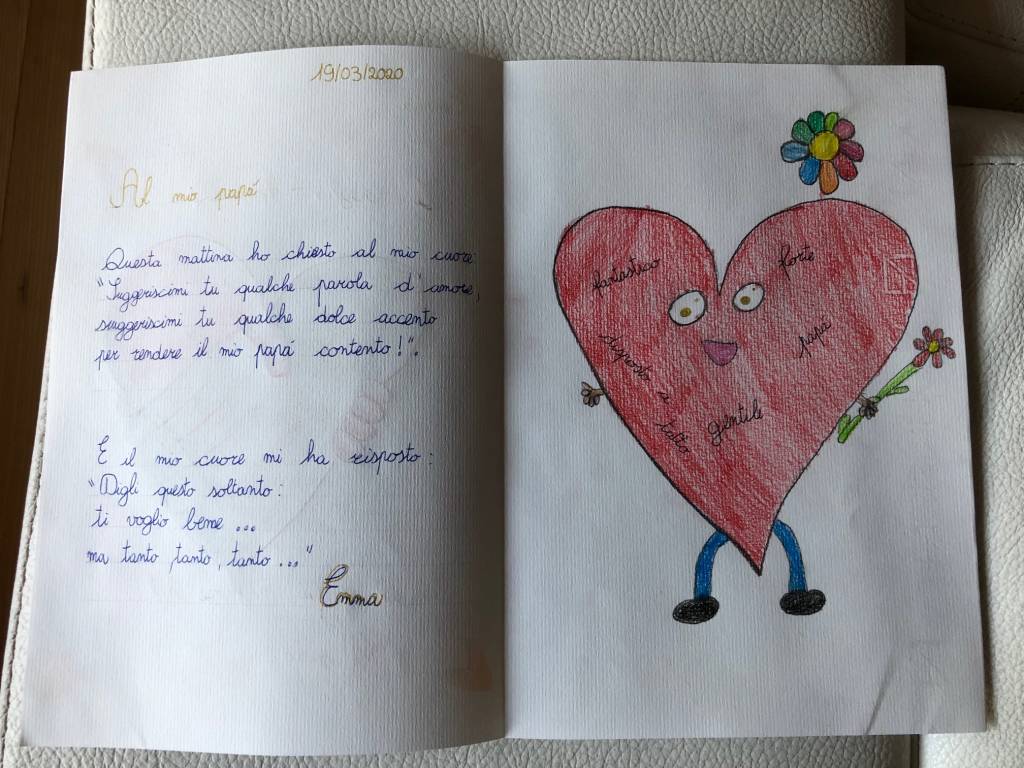 19/03/2020
Al mio papá
Questa mattina ho chiesto al mio cuore:
"Suggeriscimi tu qualche parola d'amore,
suggeriscimi tu qualche dolce accento
per rendere il mio papá contento!".
E il mio cuore mi ha risposto:
"Digli questo soltanto:
ti voglio bene ...
ma tanto, tanto, tanto ..."
Emma
fantastico
forte
disposto a tutto
papà
gentile